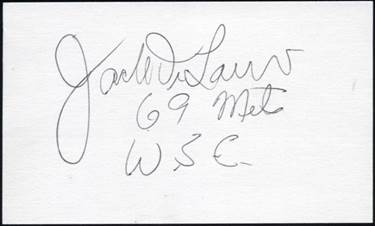 Jack DiLauro
69 Mets
W.S.C.